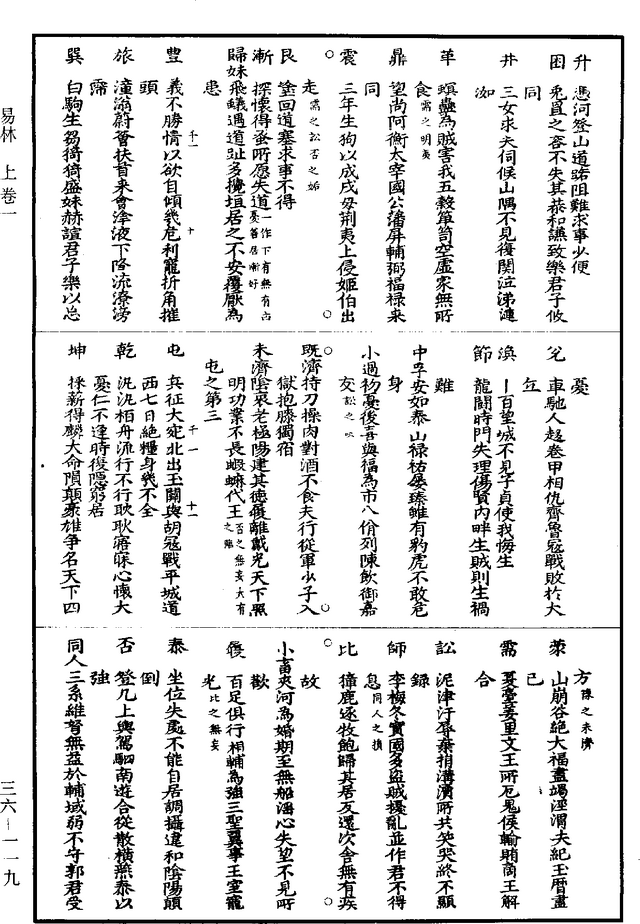 升　憑河登山道路阻難求事少便
困　兎罝之容不失其恭和謙致樂君子攸
同
井　三女求夫伺候山隅不見復関泣涕漣
洳
革　螟蟲為賊害我五穀簞笥空虛家無所
食需之明夷
鼎　望尚阿衡太宰國公藩屏輔弼福禄来
同
震　三年生狗以成戌母荊夷上侵姬伯出
走需之訟否之姤
艮　塗回道塞求事不得
漸　探懷得蚤所愿失道一作下有無有凶憂首居漸好
歸妹飛蟻遇道趾多攙垣居之不安覆厭為
患
豐　義不勝情以欲自傾幾危利寵折角摧
頭
旅　潼滃蔚薈扶首来會津液下降流潦滂
霈
巽　白駒生芻猗猗盛姝赫諠君子樂以忘
憂
兌　車馳人趨卷甲相仇齊魯冦戰敗於犬
丘
渙　｜百望城不見子貞使我悔生
節　龍鬬時門失理傷賢內畔生賊則生禍
難
中孚安如泰山禄祜屡臻雖有豹虎不敢危
身
小過初憂後喜與福為市八佾列陳飲御嘉
友訟之
既濟持刀操肉對酒不食夫行從軍少子入
獄抱膝獨宿
未濟陰衰老極陽建其德履離戴光天下照
明功業不長蝦蟆代王否之無妄大有之睽
屯之第三
屯　兵征大宛北出玉關與胡冦戰平城道
西七日絶糧身幾不全
乾　汎汎栢舟流行不行耿耿寤寐心懷大
憂仁不逢時復隱窮居
坤　採薪得麟大命隕顛豪雄争名天下四
方豫之未濟
蒙　山崩谷絶大福盡竭涇渭失紀玉曆盡
已
需　夏臺羑里文王所厄鬼侯輸賄商王解
合
訟　泥津汙辱棄捐溝瀆所共笑哭終不顯
録
師　李梅冬實國多盜賊擾亂並作君不得
息同人之損
比　獐鹿逐牧飽歸其居反還次舍無有疾
故
小畜夾河為婚期至無船淫心失望不見所
歡
履　百足俱行相輔為強三聖翼事王室寵
光比之無妄
泰　坐位失處不能自居調攝違和陰陽顛
倒
否　登几上輿駕駟南遊合從散橫燕秦以
強
同人三系維弩無益於輔域弱不守郭君受
易林　上卷一
三六－一一九